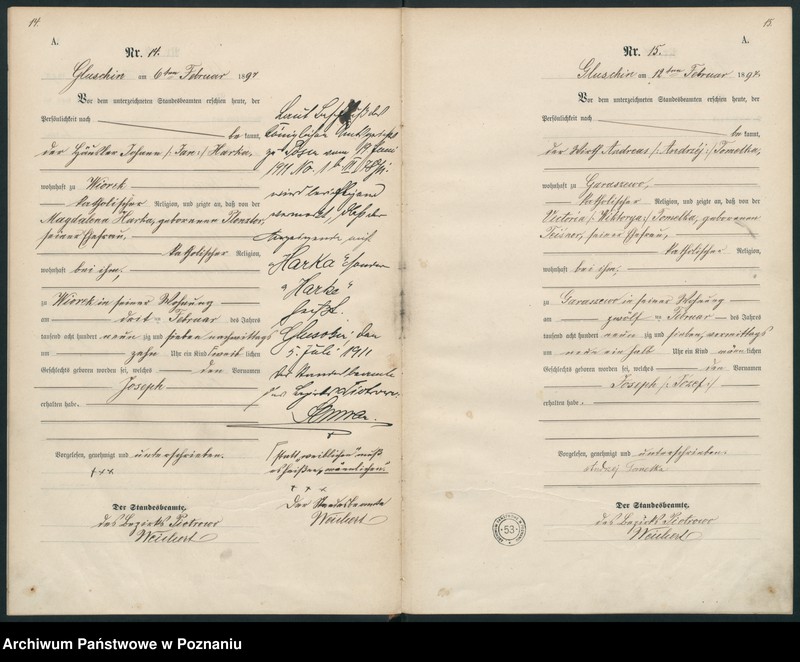 14.
A.
Nr. 14.
Gluschin am 6ten Februar 1897
Vor dem unterzeichneten Standesbeamten erschien heute, der
Persönlichkeit nach
bekannt,
der Häusler Johann /: Jan :/ Harka,
wohnhaft zu Wiorek
katholischer Religion, und zeigte an, daß von der
Magdalena Harka, geborenen
seiner Ehefrau,
katholischer Religion,
wohnhaft bei ihm,
zu Wiorek in seiner Wohnung
am Februar des Jahres
tausend acht hundert neun zig und sieben nachmittags
um zehn Uhr ein Kind weiblichen
Geschlechts geboren worden sei, welches den Vornamen
Joseph
erhalten habe.
Vorgelesen, genehmigt und unterschrieben.
+++
Der Standesbeamte.
des Bezirks Piotrowo
Weichert
Laut Beschluß des
Königlichen Amtsgerichts
zu Posen vom 19 Juni
1911 No. 1
wird berichtigend
vermerkt, daß der
Anzeigende nicht
"Harka" sondern
"Harke"
heißt.
den
5. Juli 1911
Der Standesbeamte
des Bezirks Piotrowo
statt "weiblichen" muß
es heißen "männlichen".
+ + +
Der Standesbeamte
Weichert
15
A.
Nr. 15.
Gluschin am 12ten Februar 1897.
Vor dem unterzeichneten Standesbeamten erschien heute, der
Persönlichkeit nach
bekannt,
der Wirth Andreas /: Andrzéj :/ Tomelka,
wohnhaft zu Garaszewo,
katholischer Religion, und zeigte an, daß von der
Victoria /: Wiktorya :/ Tomelka, geborenen
seiner Ehefrau,
katholischer Religion,
wohnhaft bei ihm,
zu Garaszewo in seiner Wohnung
am zwölften Februar des Jahres
tausend acht hundert neun zig und sieben, vormittags
um neun ein halb Uhr ein Kind männlichen
Geschlechts geboren worden sei, welches den Vornamen
Joseph /: Józef :/
erhalten habe.
Vorgelesen, genehmigt und unterschrieben.
Andrzej Tomelka
Der Standesbeamte.
des Bezirks Piotrowo
Weichert
53
Archiwum Państwowe w Poznaniu